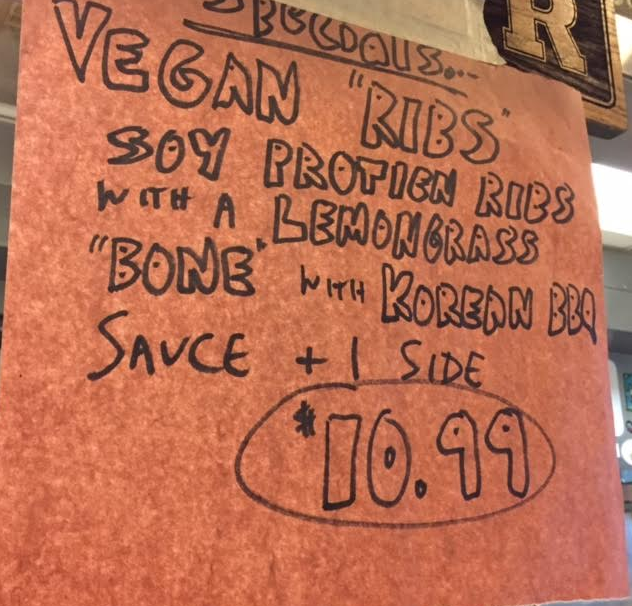 SPECIALS...
VEGAN "RIBS"
SOY PROTIEN RIBS
WITH A LEMONGRASS
"BONE" WITH KOREAN BBQ
SAUCE + 1 SIDE
$10.99
R